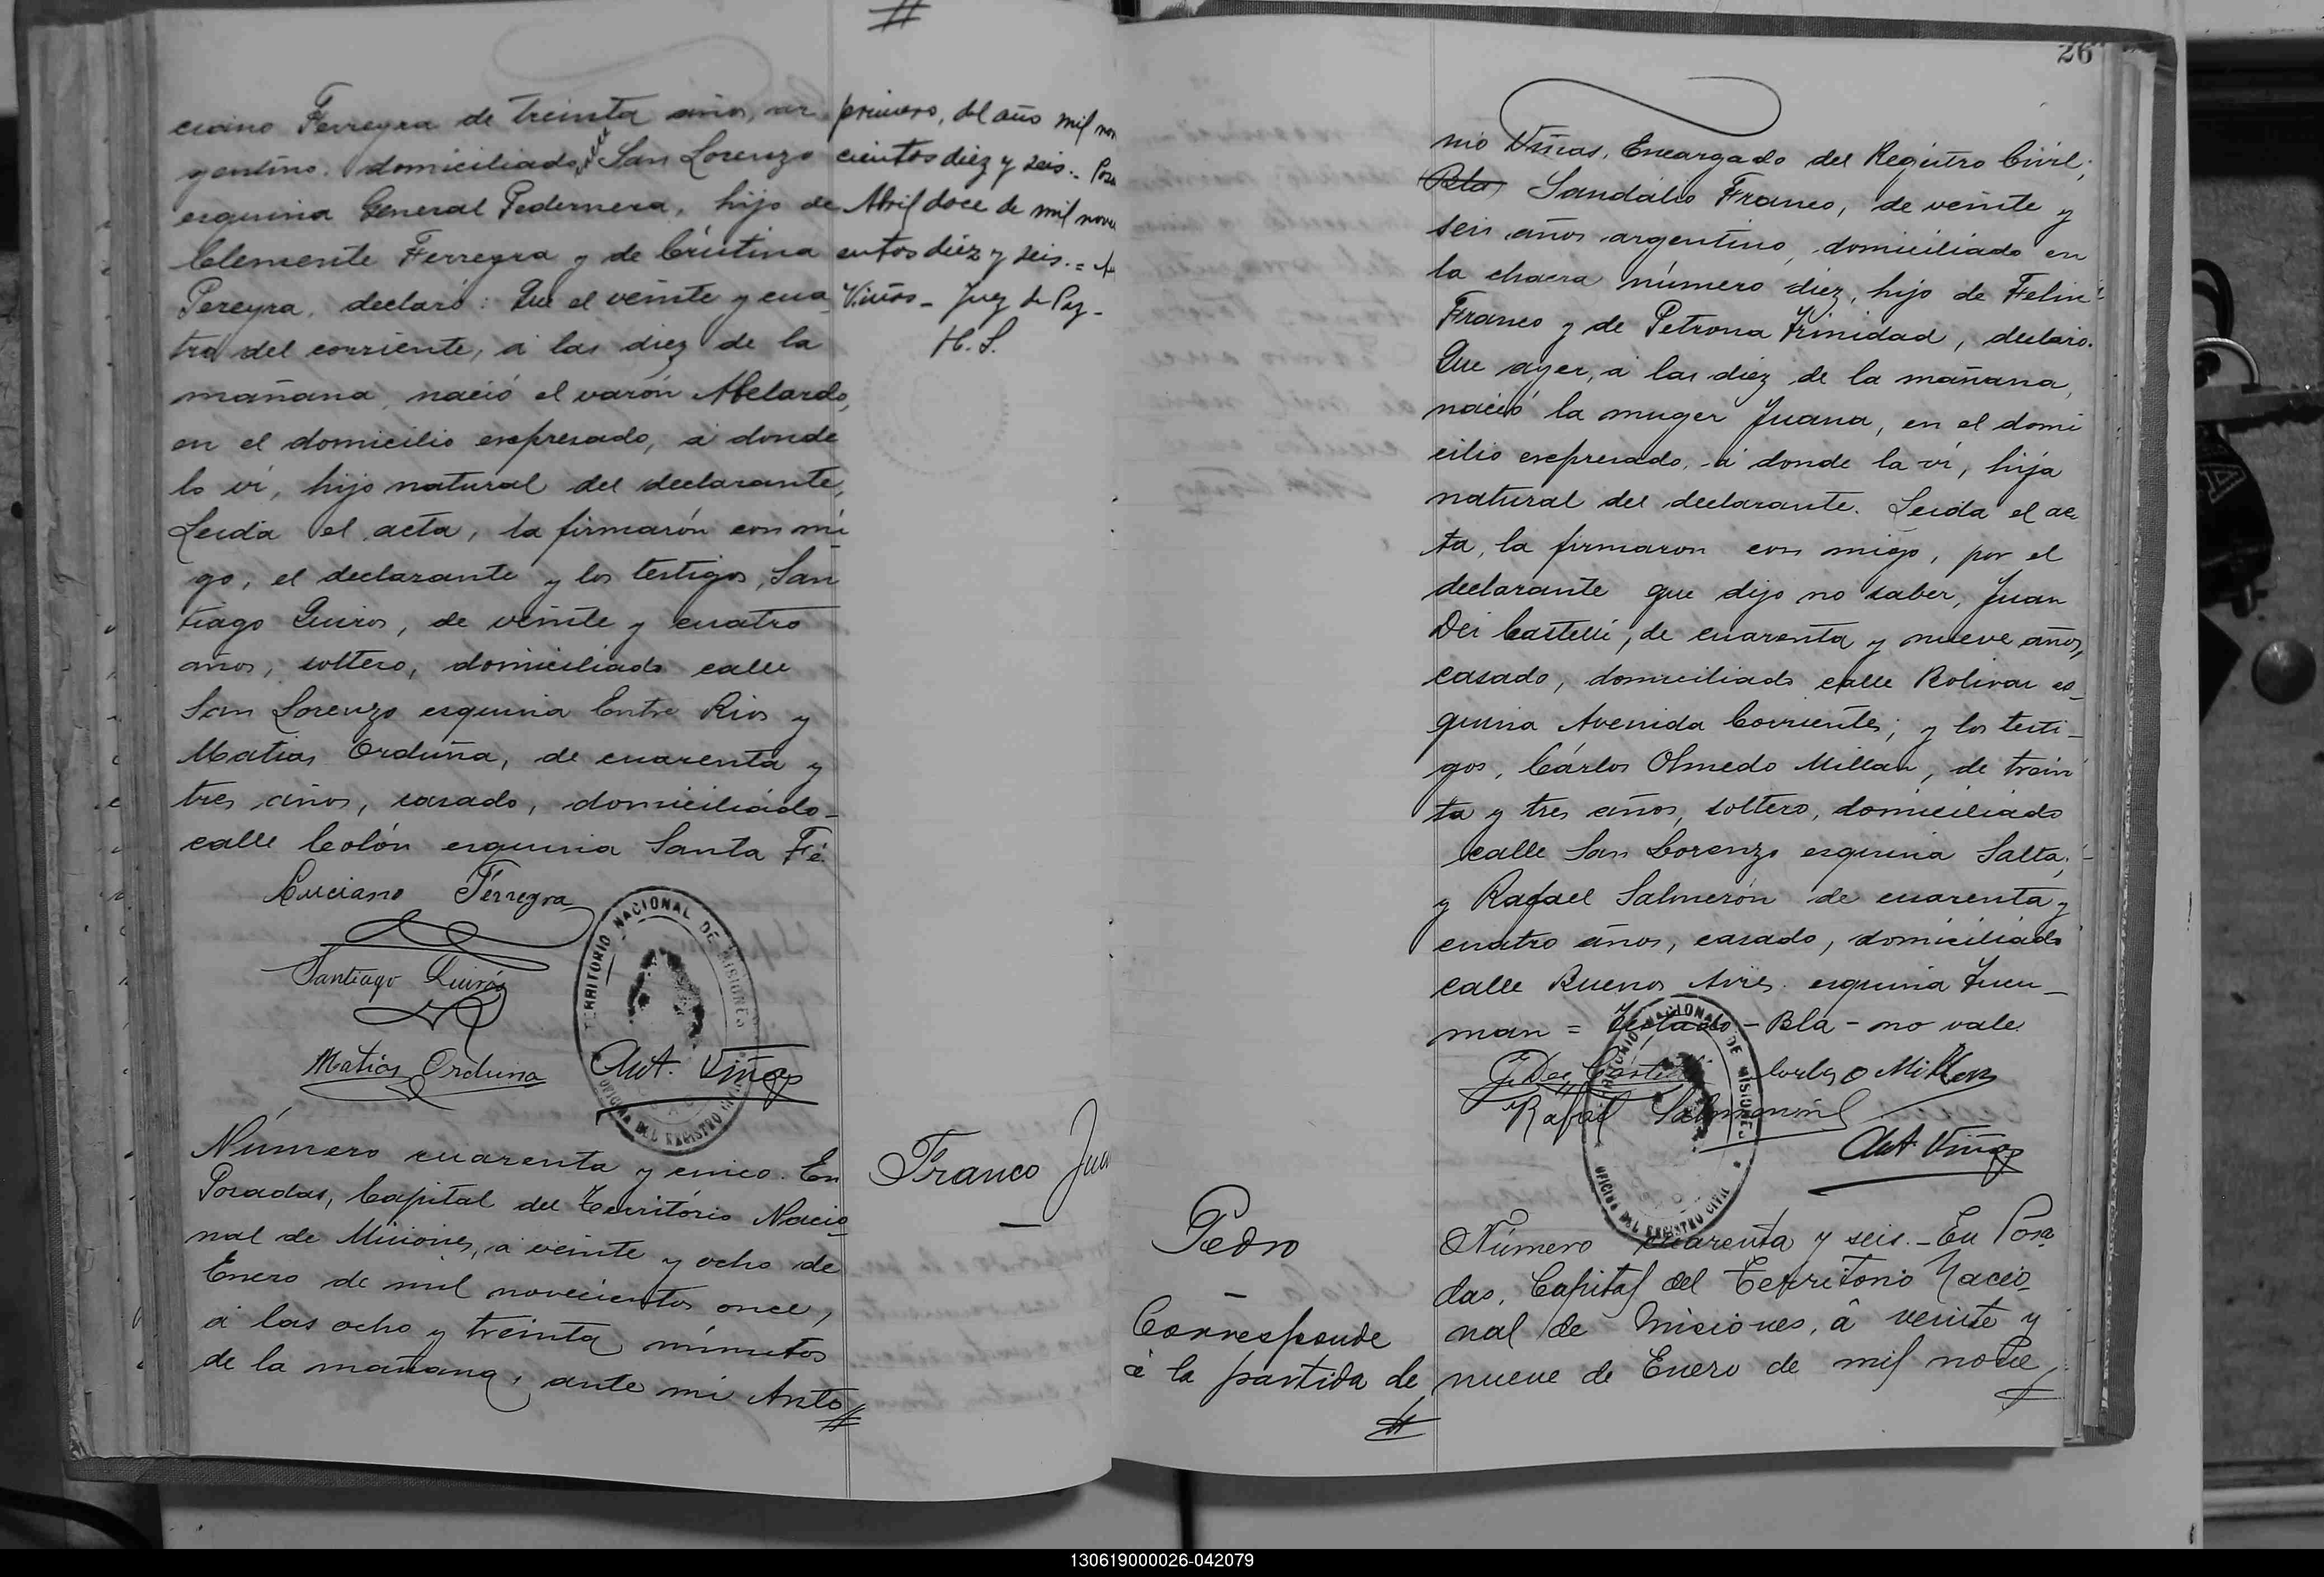 #
ciano Ferreyra de treinta años, ar
gentino, domiciliado calle San Lorenzo
esquina General Pedernera, hijo de
Clemente Ferreyra y de Cristina
Pereyra, declaró: Que el veinte y cua
tro del corriente, á las diez de la
mañana, nació el varón Abelardo,
en el domicilio expresado, á donde
lo ví, hijo natural del declarante,
Leida el acta, la firmarón con mi
go, el declarante y los testigos, San
tiago Quiros, de veinte y cuatro
años, soltero, domiciliado calle
San Lorenzo esquina Entre Rios y
Matias Orduña, de cuarenta y
tres años, casado, domiciliado
calle Colón esquina Santa Fé
Luciano Ferreyra
Santiago Quirós
Matias Orduña
Ant. Viñas
TERRITORIO NACIONAL DE MISIONES
OFICINA DEL REGISTRO CIVIL
primero, del año mil nov
cientos diez y seis.- Posa
Abril doce de mil nove
cientos diez y seis.= A
Viñas - Juez de Paz -
H. S.
Número cuarenta y cinco. En
Posadas, Capital del Território Nacio
nal de Misiones, á veinte y ocho de
Enero de mil novecientos once,
á las ocho y treinta minutos
de la mañana, ante mi Anto
#
Franco Jua
26
nio Viñas, Encargado del Registro Civil;
Bla, Sandálio Franco, de veinte y
seis años argentino, domiciliado en
la chacra número diez, hijo de Felin
Franco y de Petrona Trinidad, declaró.
Que ayer, á las diez de la mañana,
nació la muger Juana, en el domi
cilio expresado, á donde la ví, hija
natural del declarante. Leida el ac
ta, la firmaron con migo, por el
declarante que dijo no saber, Juan
Dei Castelli, de cuarenta y nueve años,
casado, domiciliado calle Bolivar es-
quina Avenida Corrientes; y los testi-
gos, Cárlos Olmedo Millan, de trein
ta y tres años, soltero, domiciliado
calle San Lorenzo esquina Salta;
y Rafael Salmerón de cuarenta y
cuatro años, casado, domiciliado
calle Buenos Aires esquina Tucu-
man = Testado - Bla - no vale.
J. Dei Castelli
Carlos O Millan
Rafael Salmerón
Ant. Viñas
TERRITORIO NACIONAL DE MISIONES
OFICINA DEL REGISTRO CIVIL
Pedro
Corresponde
à la partida de
#
Número cuarenta y seis.- En Posa
das, Capital del Territorio Nacio
nal de Misiones, á veinte y
nueve de Enero de mil nove
130619000026-042079